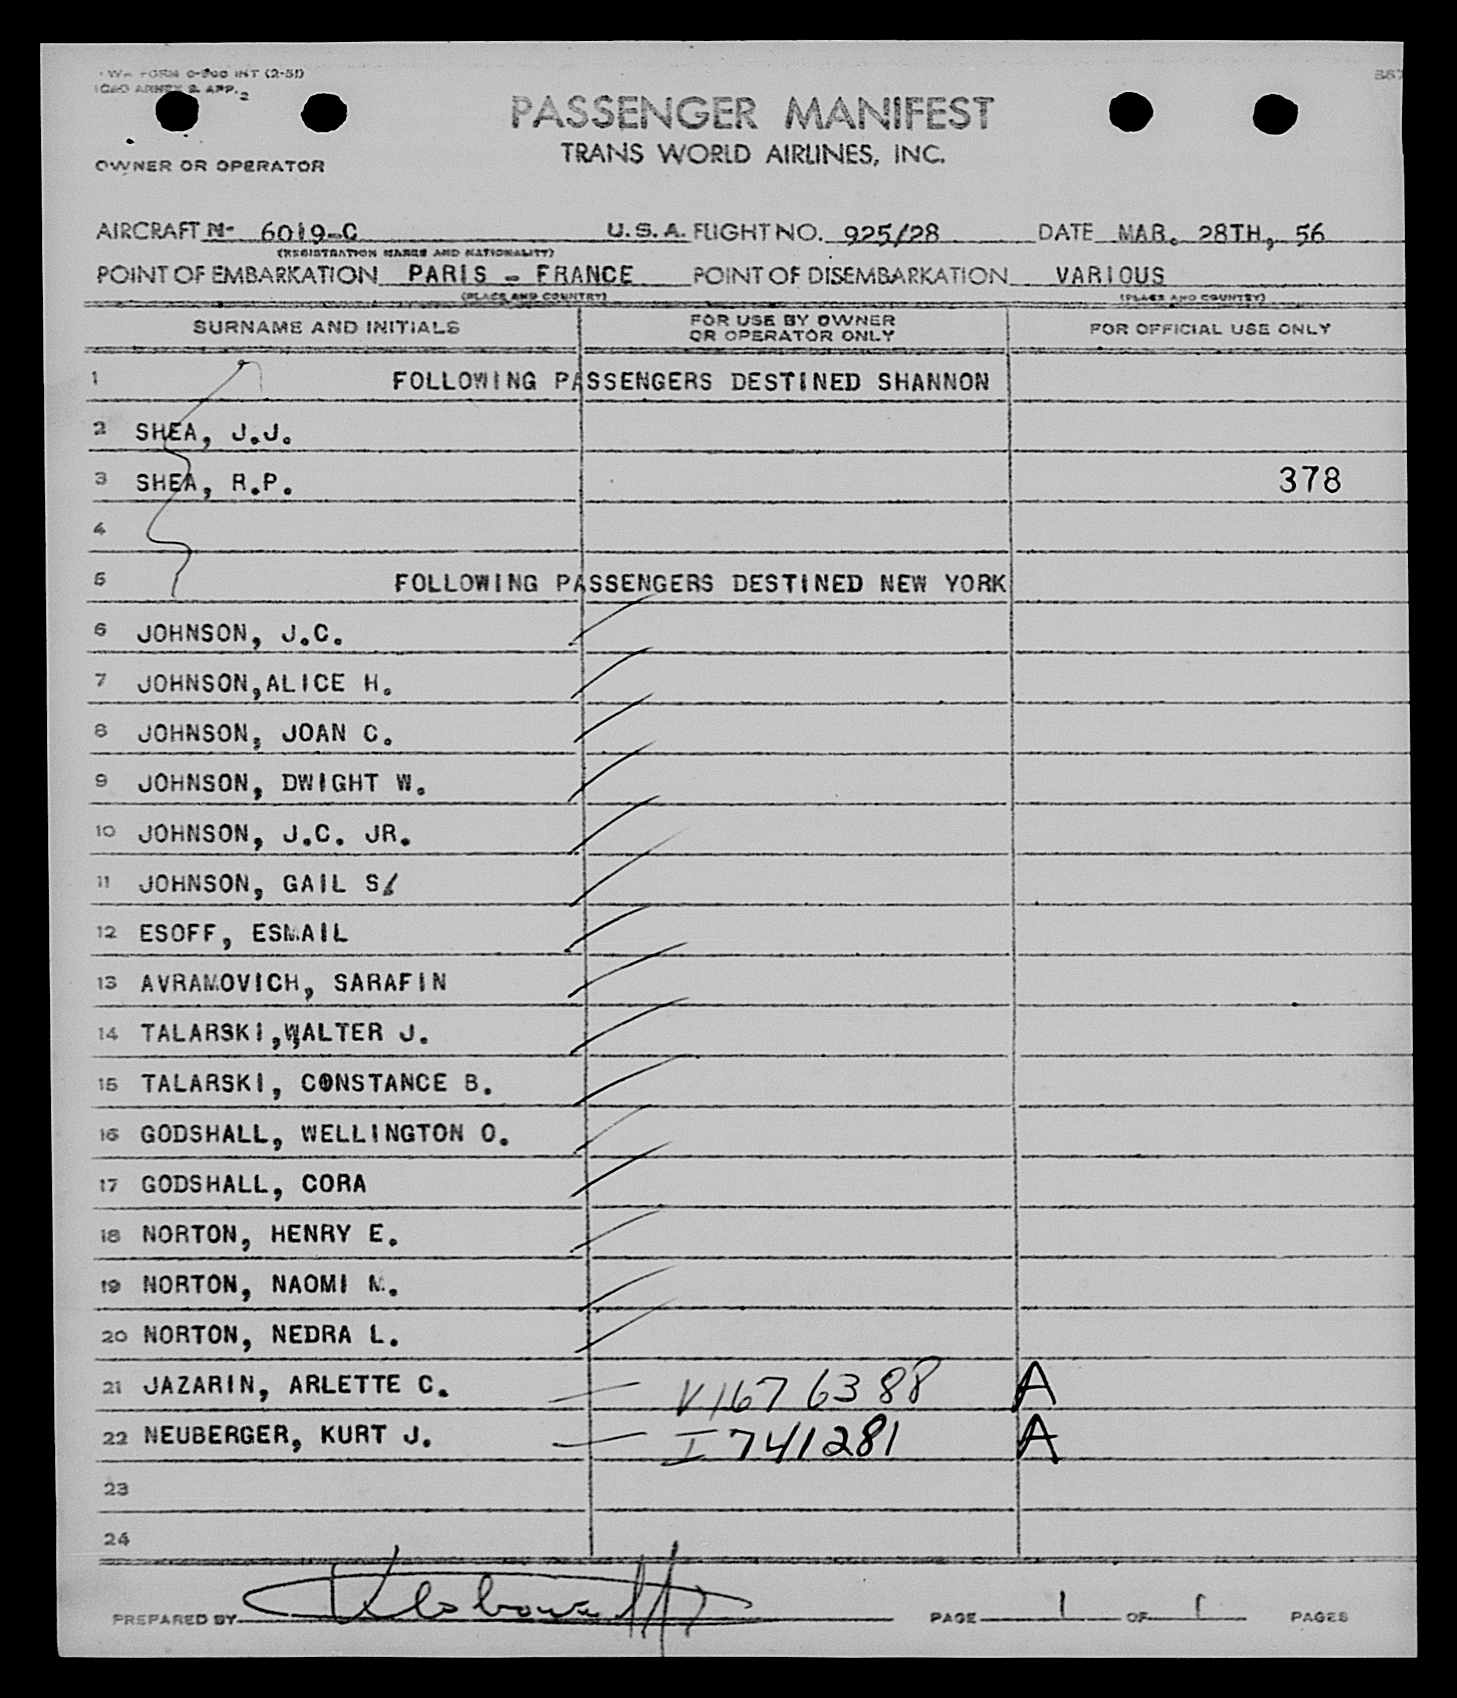 TWA FORM O-900 INT (2-51)
ICAO ANNEX 9. APP. 2
PASSENGER MANIFEST
TRANS WORLD AIRLINES, INC.
OWNER OR OPERATOR
AIRCRAFT N- 6019-C U.S.A. FLIGHT NO. 925/28 DATE MAR. 28TH, 56
(REGISTRATION MARKS AND NATIONALITY)
POINT OF EMBARKATION PARIS - FRANCE POINT OF DISEMBARKATION VARIOUS
(PLACE AND COUNTRY) (PLACE AND COUNTRY)
SURNAME AND INITIALS FOR USE BY OWNER OR OPERATOR ONLY FOR OFFICIAL USE ONLY
1 FOLLOWING PASSENGERS DESTINED SHANNON
2 SHEA, J.J.
3 SHEA, R.P. 378
4
5 FOLLOWING PASSENGERS DESTINED NEW YORK
6 JOHNSON, J.C.
7 JOHNSON,ALICE H.
8 JOHNSON, JOAN C.
9 JOHNSON, DWIGHT W.
10 JOHNSON, J.C. JR.
11 JOHNSON, GAIL S.
12 ESOFF, ESMAIL
13 AVRAMOVICH, SARAFIN
14 TALARSKI,WALTER J.
15 TALARSKI, CONSTANCE B.
16 GODSHALL, WELLINGTON O.
17 GODSHALL, CORA
18 NORTON, HENRY E.
19 NORTON, NAOMI M.
20 NORTON, NEDRA L.
21 JAZARIN, ARLETTE C. V1676388 A
22 NEUBERGER, KURT J. I741281 A
23
24
PREPARED BY PAGE 1 OF 1 PAGES